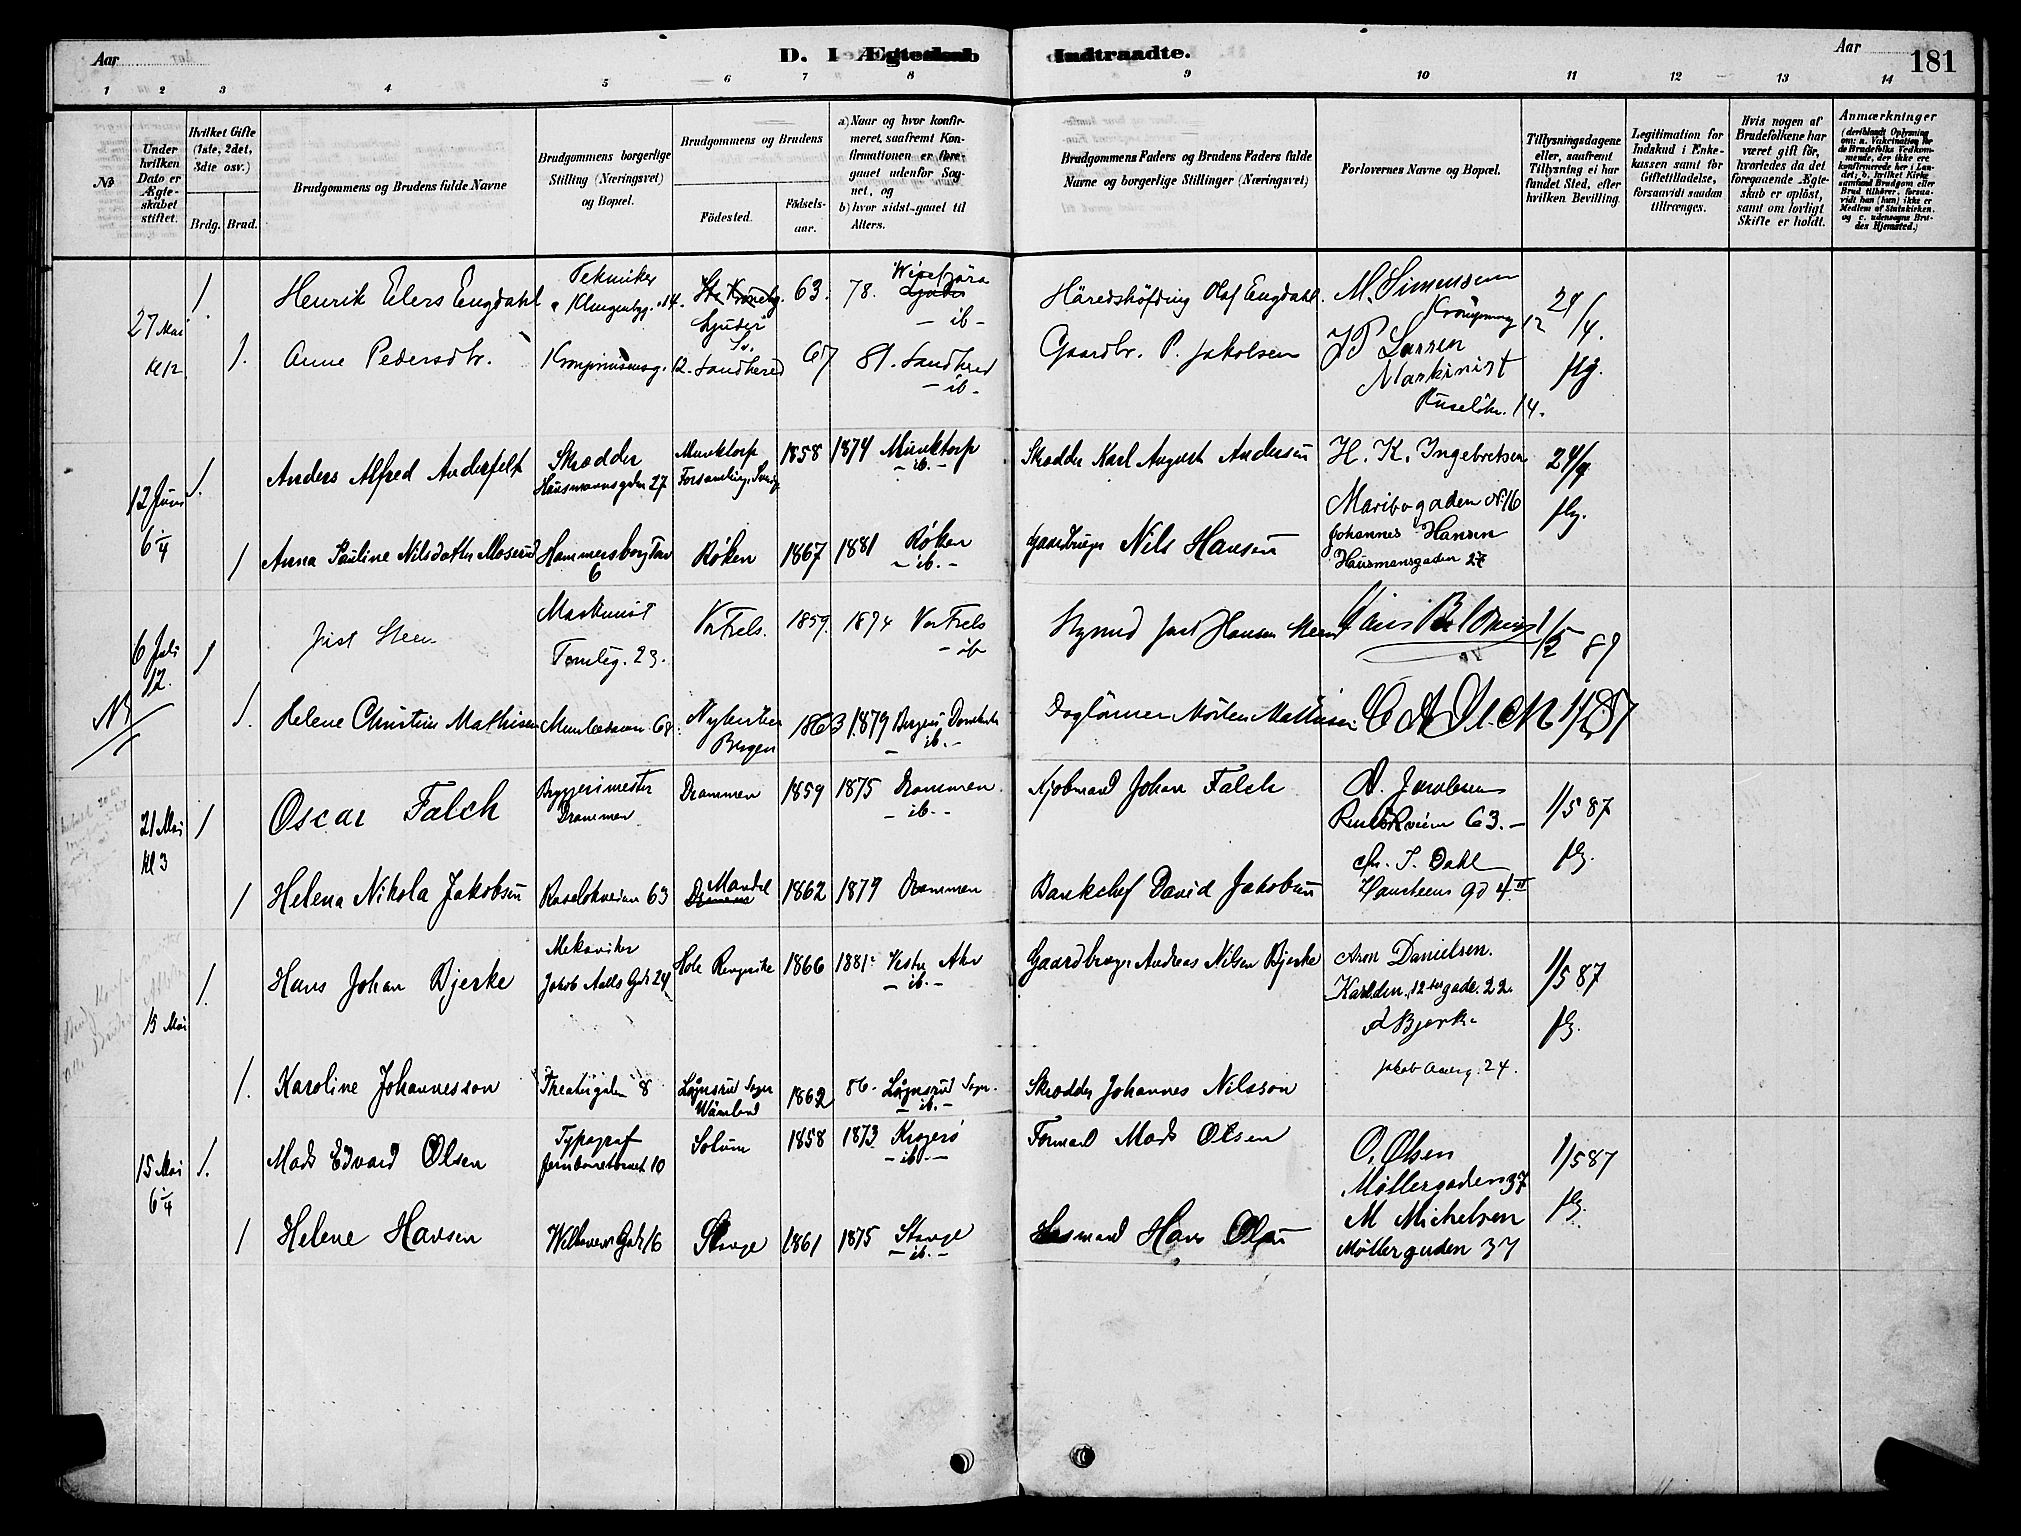 Aar
D. I Ægteskab Indtraadte.
Aar
181
1 2 3 4 5 6 7 8 9 10 11 12 13 14
No
Under hvilken Dato er Ægteskabet stiftet.
Hvilket Gifte (1ste, 2det, 3die osv.)
Brdg. Brud.
Brudgommens og Brudens fulde Navne
Brudgommens borgerlige Stilling (Næringsvei) og Bopæl.
Brudgommens og Brudens
Födested.
Födsels-aar.
a) Naar og hvor konfirmeret, saafremt Konfirmationen er foregaaet udenfor Sognet, og
b) hvor sidst gaaet til Alters.
Brudgommens Faders og Brudens Faders fulde Navne og borgerlige Stillinger (Næringsvei)
Forlovernes Navne og Bopæl.
Tillysningsdagene eller, saafremt Tillysning ei har fundet Sted, efter hvilken Bevilling.
Legitimation for Indskud i Enkekassen samt for Giftetilladelse, forsaavidt saadan tiltrænges.
Hvis nogen af Brudefolkene har været gift för, hvorledes da det foregaaende Ægteskab er oplöst, samt om lovligt Skifte er holdt.
Anmærkninger
27 Mai
Kl 12
1.
Henrik Eilers Engdahl
Tekniker
14.
Ljuder
63.
78.
- ib -
Häredshöfding Olaf Engdahl.
M. Simensen
12
24/4.
1.
Anne Pedersdtr.
Kronprinsensg. 12.
Landhered
67
81. Landhered
- ib -
Gaardbr. P. Jakobsen
J P Larsen
Maskinist
Ruseløkv. 14.
12 Juni
6 1/4
1.
Anders Alfred Anderfelt
Skrædder
Hausmannsgaden 27
Munktorp
1858
1874 Munktorp
- ib. -
Skrædder Karl August Andersen
H. K. Ingebretsen
Maribogaden No 16
24/4
1
Anna Pauline Nilsdatter Moserud
Hammersborg Torv 6
Røken
1867
1881 Røken
- ib. -
Gaardbruger Nils Hansen
Johannes Hansen
Hausmansgaden 27
6 Juli
12.
1
Just Steen
Maskinist
Tomteg. 23.
Vor Frels.
1859.
1874 Vor Frels
- ib
Styrmd Just Hansen Steen
1/5 87
1.
Helene Christine Mathisen
Munkedamsv. 68.
Nykirken
Bergen
1863
1879 Bergens Domkirke
- ib. -
Daglønner Morten Mathisen
1/5 87
21 Mai
Kl 3
1
Oscar Falch
Bryggerimester
Drammen
Drammen
1859
1875 Drammen
- ib. -
Kjøbmand Johan Falch
A. Jacobsen
63. -
1/5 87
1
Helena Nikola Jakobsen
Ruseløkveien 63
Mandal
1862
1879 Drammen
Bankchef David Jakobsen
Chr. S. Dahl
Hansteens gd 4 II
15 Mai
1.
Hans Johan Bjerke
Mekaniker
Jakob Aalls Gd 24
Hole Ringerike
1866
1881 Vestre Aker
- ib. -
Gaardbruger Andreas Nilsen Bjerke
Aron Danielsen.
Karl den 12tes gade. 22.
A Bjerke
Jakob Aallsg. 24.
1/5 87
1.
Karoline Johannesson
Theatergaden 8
Sogn
Wärmland
1862
86.
- ib. -
Skrædder Johannes Nilsson
15 Mai
6 1/4
1.
Mads Edvard Olsen
Typograf
Jernbanetorvet 10
Solum
1858
1873 Kragerø
- ib. -
Formand Mads Olsen
O. Olsen
Møllergaden 37
1/5 87
1
Helene Hansen
16
Stange
1861
1875 Stange
- ib. -
Husmand Hans Olsen
M Michelsen
Møllergaden 37